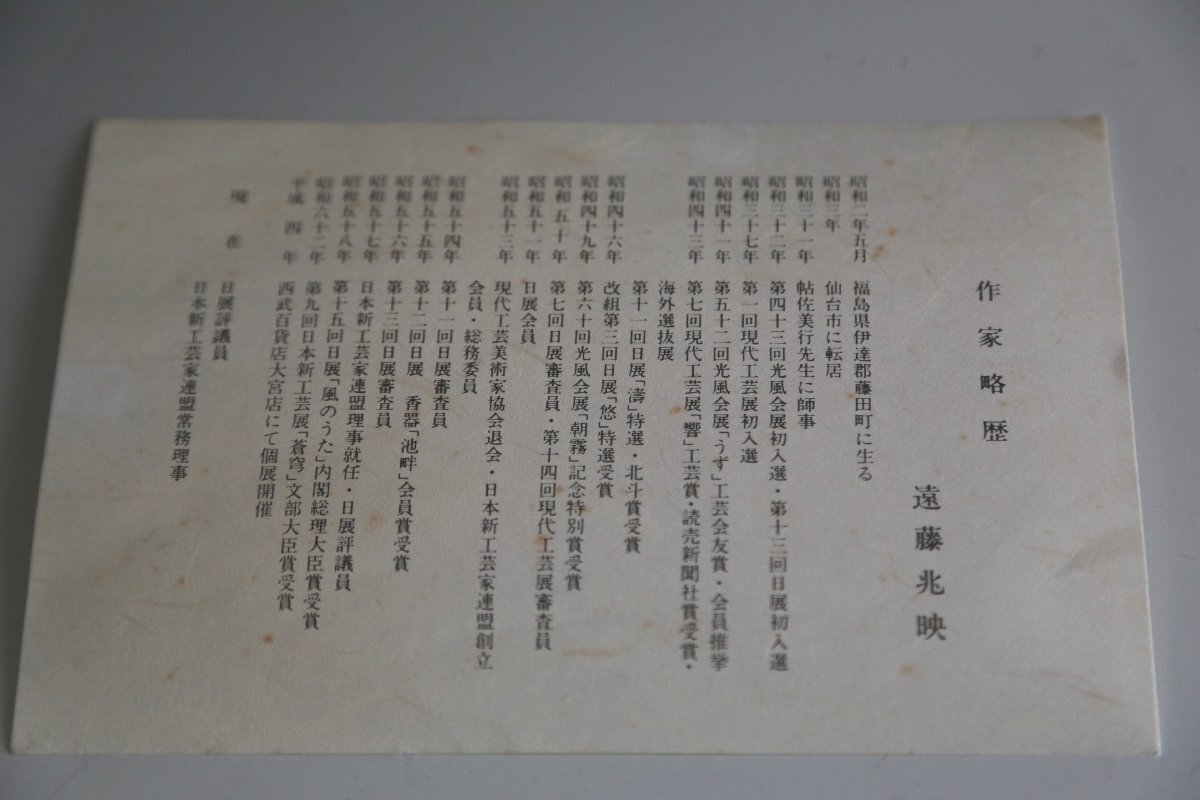 作家略歴
遠藤兆映
昭和二年五月 福島県伊達郡藤田町に生る
昭和三年 仙台市に転居
昭和三十一年 帖佐美行先生に師事
昭和三十二年 第四十三回光風会展初入選・第十三回日展初入選
昭和三十七年 第一回現代工芸展初入選
昭和四十一年 第五十二回光風会展「うず」工芸会友賞・会員推挙
昭和四十三年 第七回現代工芸展「響」工芸賞・読売新聞社賞受賞・
海外選抜展
第十一回日展「濤」特選・北斗賞受賞
昭和四十六年 改組第三回日展「悠」特選受賞
昭和四十九年 第六十回光風会展「朝霧」記念特別賞受賞
昭和五十年 第七回日展審査員・第十四回現代工芸展審査員
昭和五十一年 日展会員
昭和五十三年 現代工芸美術家協会退会・日本新工芸家連盟創立
会員・総務委員
昭和五十四年 第十一回日展審査員
昭和五十五年 第十二回日展 香器「池畔」会員賞受賞
昭和五十六年 第十三回日展審査員
昭和五十七年 日本新工芸家連盟理事就任・日展評議員
昭和五十八年 第十五回日展「風のうた」内閣総理大臣賞受賞
昭和六十二年 第九回日本新工芸展「蒼穹」文部大臣賞受賞
平成四年 西武百貨店大宮店にて個展開催
現在 日展評議員
日本新工芸家連盟常務理事